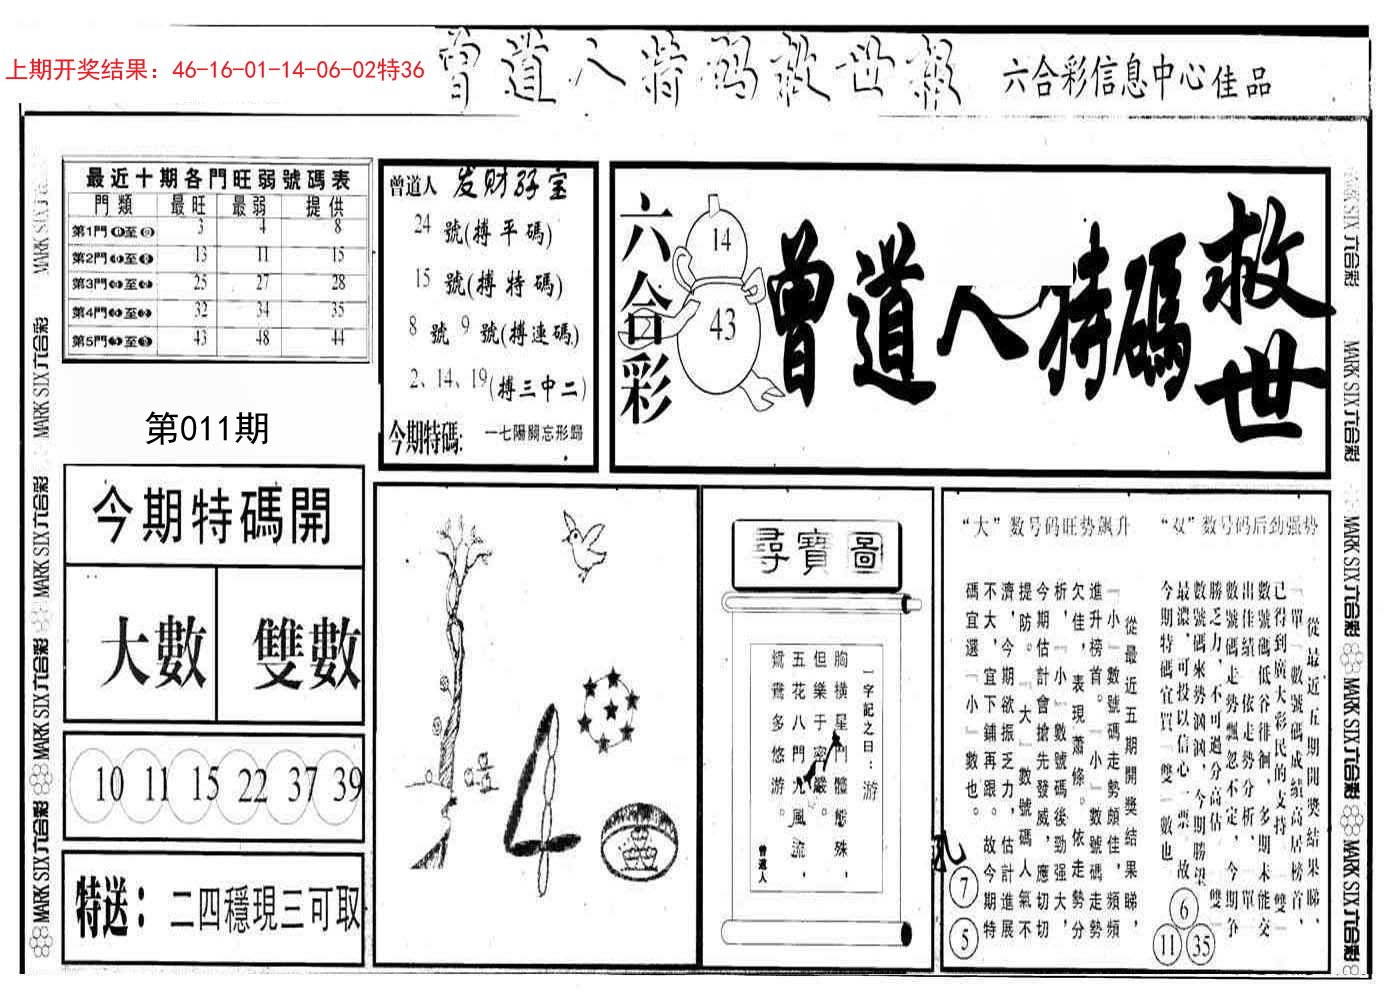 上期开奖结果：46-16-01-14-06-02特36
曾道人特码救世報
六合彩信息中心佳品
最近十期各門旺弱號碼表
門類 最旺 最弱 提供
第1門 至 3 4 8
第2門 至 13 11 15
第3門 至 25 27 28
第4門 至 32 34 35
第5門 至 43 48 44
第011期
今期特碼開
大數 雙數
10 11 15 22 37 39
特送：二四穩現三可取
曾道人
24 號(搏平碼)
15 號(搏特碼)
8 號 9 號(搏連碼)
2、14、19(搏三中二)
今期特碼: 一七陽關忘形歸
六合彩
14
43
曾道人特碼救世
尋寶圖
一字記之曰：游
胸橫星門體態殊，
但樂于密嚴。
五花八門九風流，
鴛鴦多悠游。
曾道人
“大”数号码旺势飙升
從最近五期開獎結果睇，
『小』數號碼走勢頗佳，頻頻
進升榜首。『小』數號碼走勢
欠佳，表現蕭條。依走勢分
析，『小』數號碼後勁强大，
今期估計會搶先發威，應切切
提防。『大』數號碼人氣不
濟，今期欲振乏力，估計進展
不大，宜下鋪再跟。故今期特
碼宜選『小』數也。
7
5
“双”数号码后劲强势
從最近五期開獎結果睇，
『單』數號碼成績高居榜首，
已得到廣大彩民的支持『雙』
數號碼低谷徘徊，多期未能交
出佳績 依走勢分析，『單』
數號碼走勢飄忽不定，今期争
勝乏力，不可過分高估『雙』
數號碼來勢洶洶，今期勝望
最濃，可投以信心一票 故
今期特碼宜買『雙』數也
6
11 35
MARK SIX六合彩
MARK SIX六合彩
MARK SIX六合彩
MARK SIX六合彩
MARK SIX六合彩
MARK SIX六合彩
MARK SIX六合彩
MARK SIX六合彩
MARK SIX六合彩